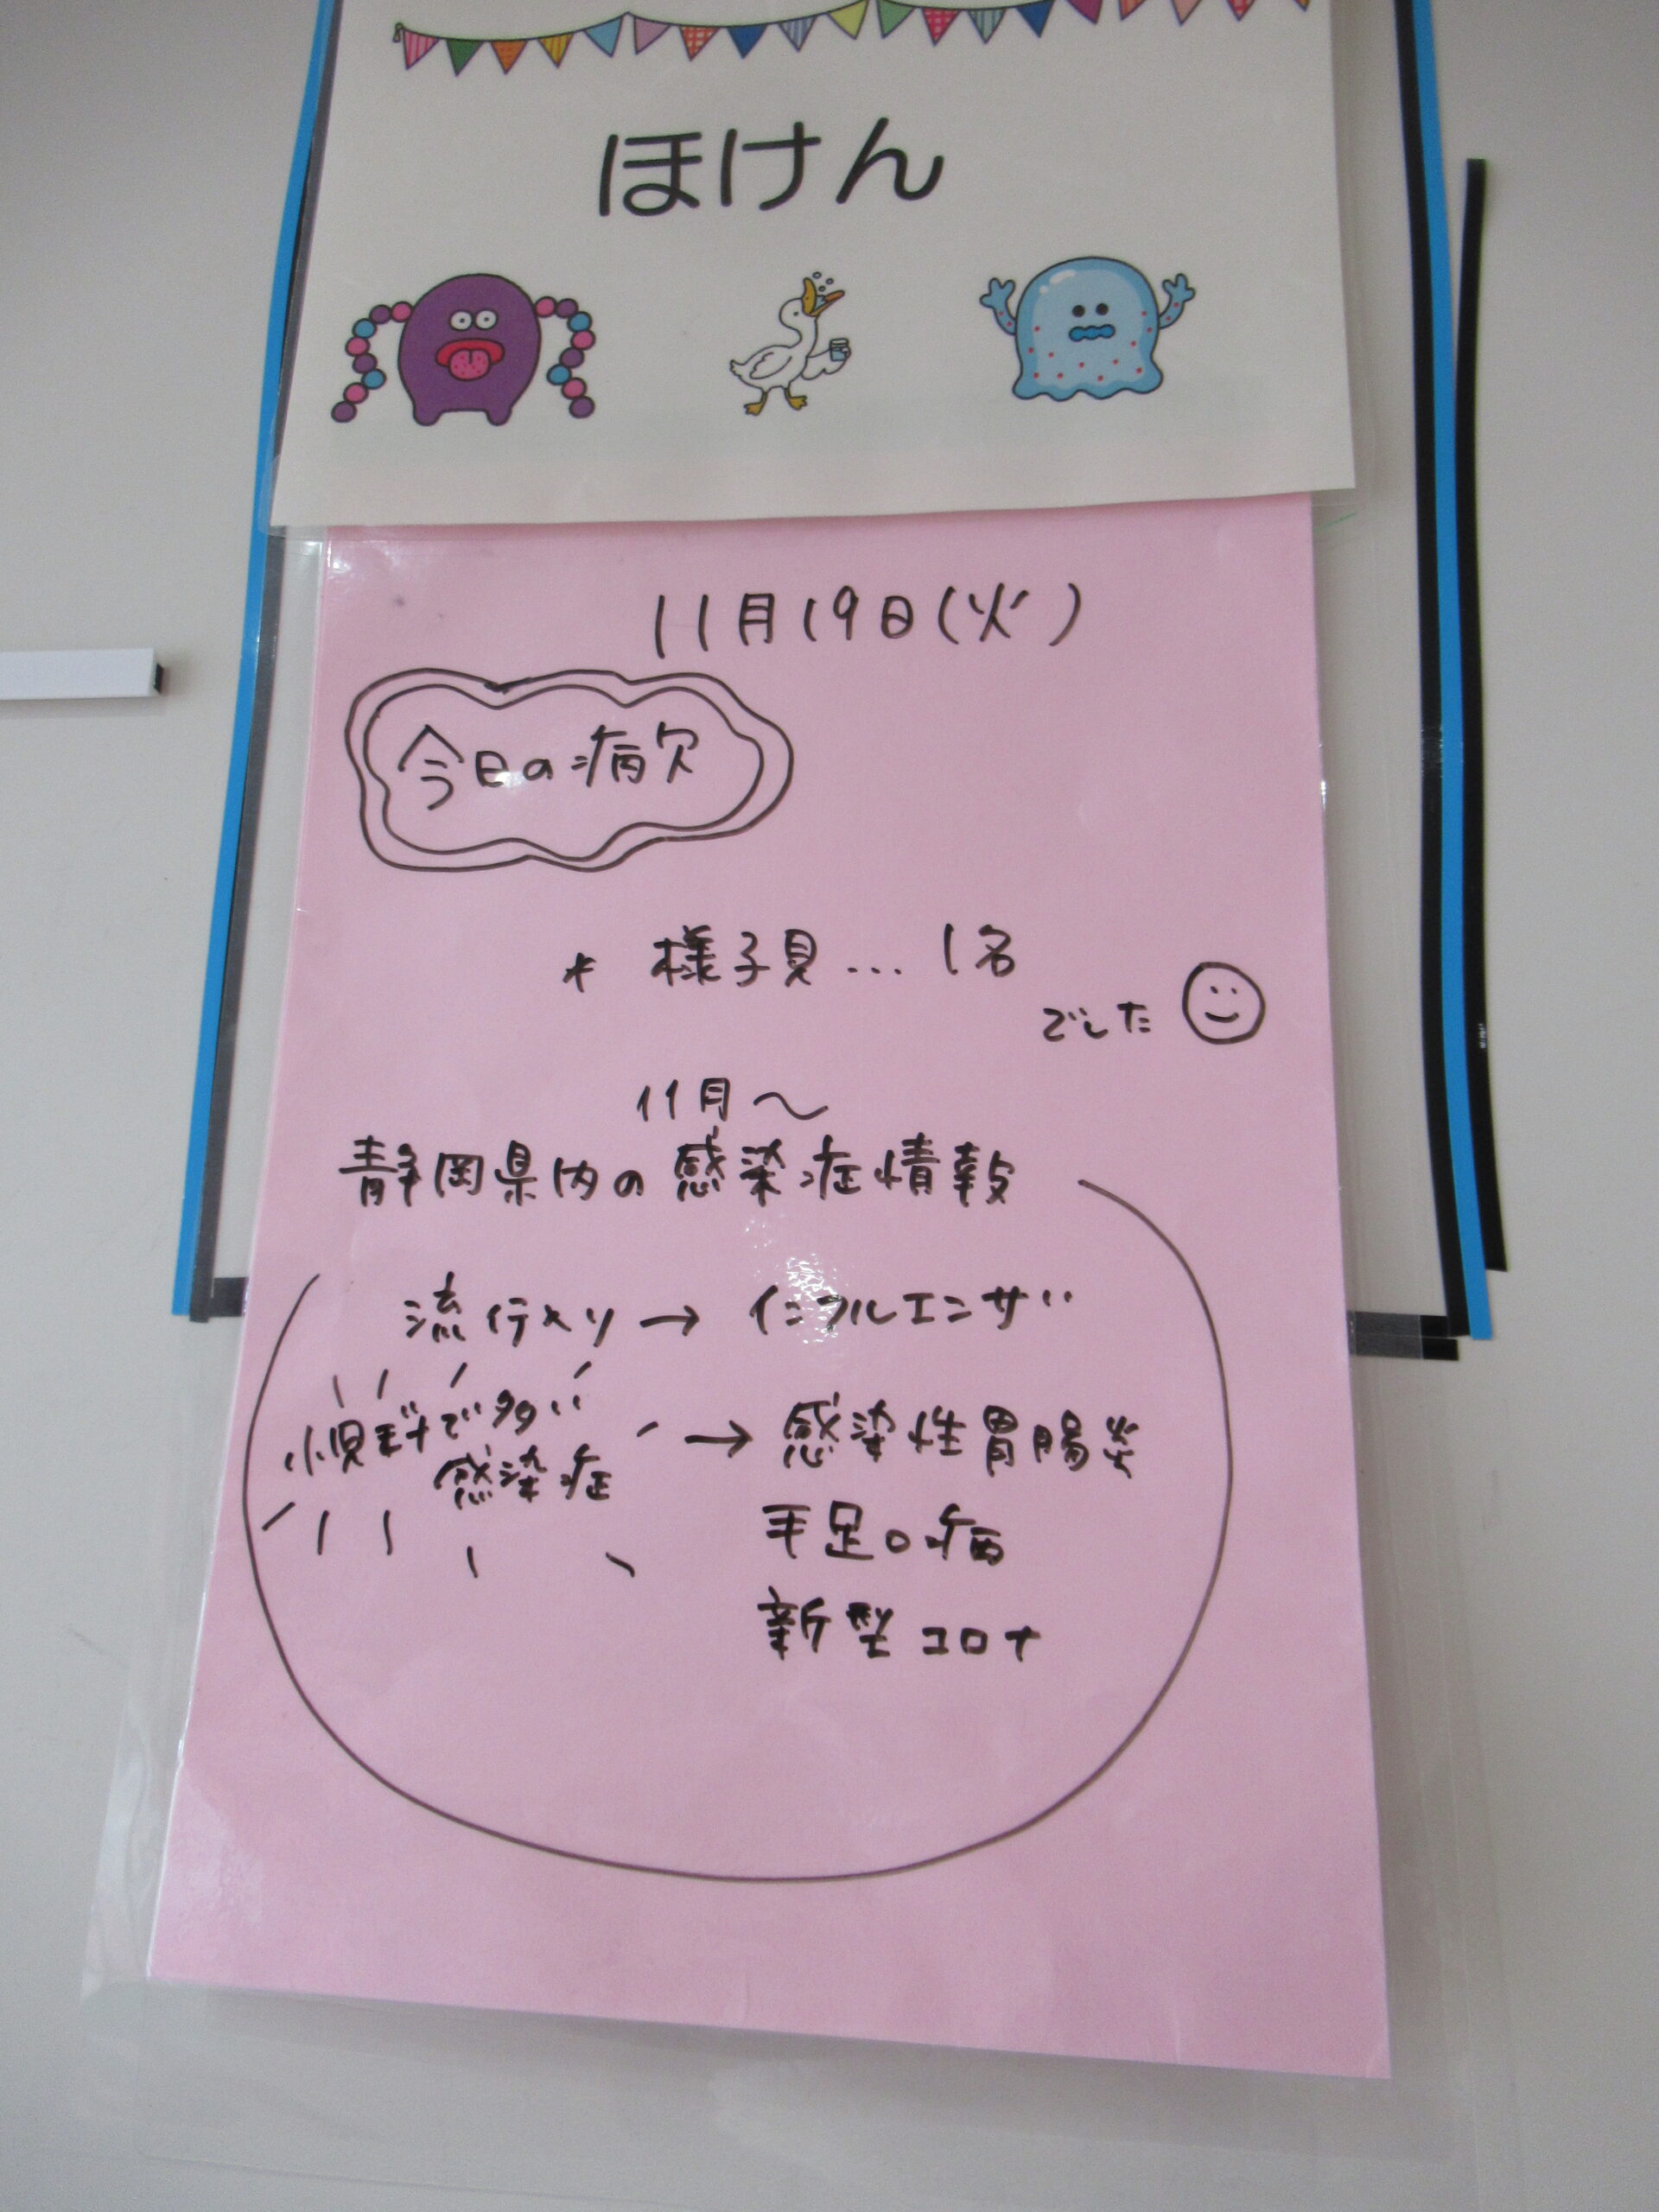 ほけん
11月19日(火)
今日の病欠
* 様子見… 1名
でした
11月〜
静岡県内の感染症情報
流行入り → インフルエンザ
で多い
感染症
→ 感染性胃腸炎
手足口病
新型コロナ